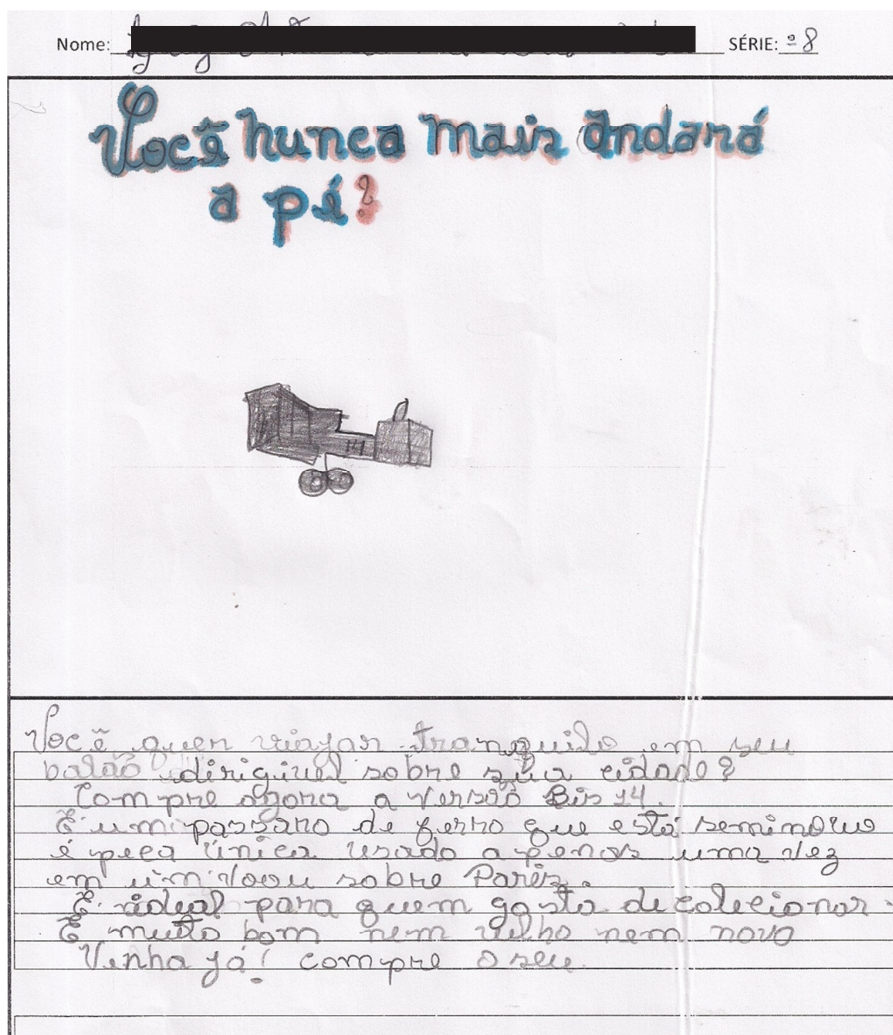 Nome: SÉRIE: º8
Você nunca mais andará
a pé?
14
Você quer viajar tranquilo em seu
balão dirigivel sobre sua cidade?
Compre agora a versão Bis 14.
É um passaro de ferro que está seminovo
é peça única usado apenas uma vez
em um voou sobre Paris.
É ideal para quem gosta de colecionar.
É muito bom nem velho nem novo
Venha já! compre o seu.